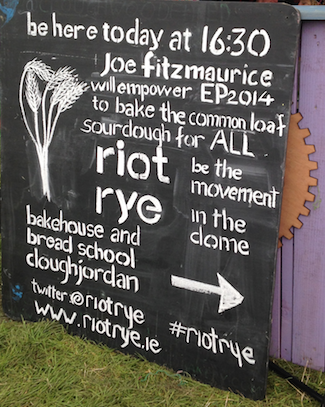 be here today at 16:30
Joe fitzmaurice
will empower EP2014
to bake the common loaf
sourdough for ALL
riot
rye
be the
movement
in the
dome
bakehouse and
bread school
cloughjordan
twitter@riotrye
www.riotrye.ie
#riotrye